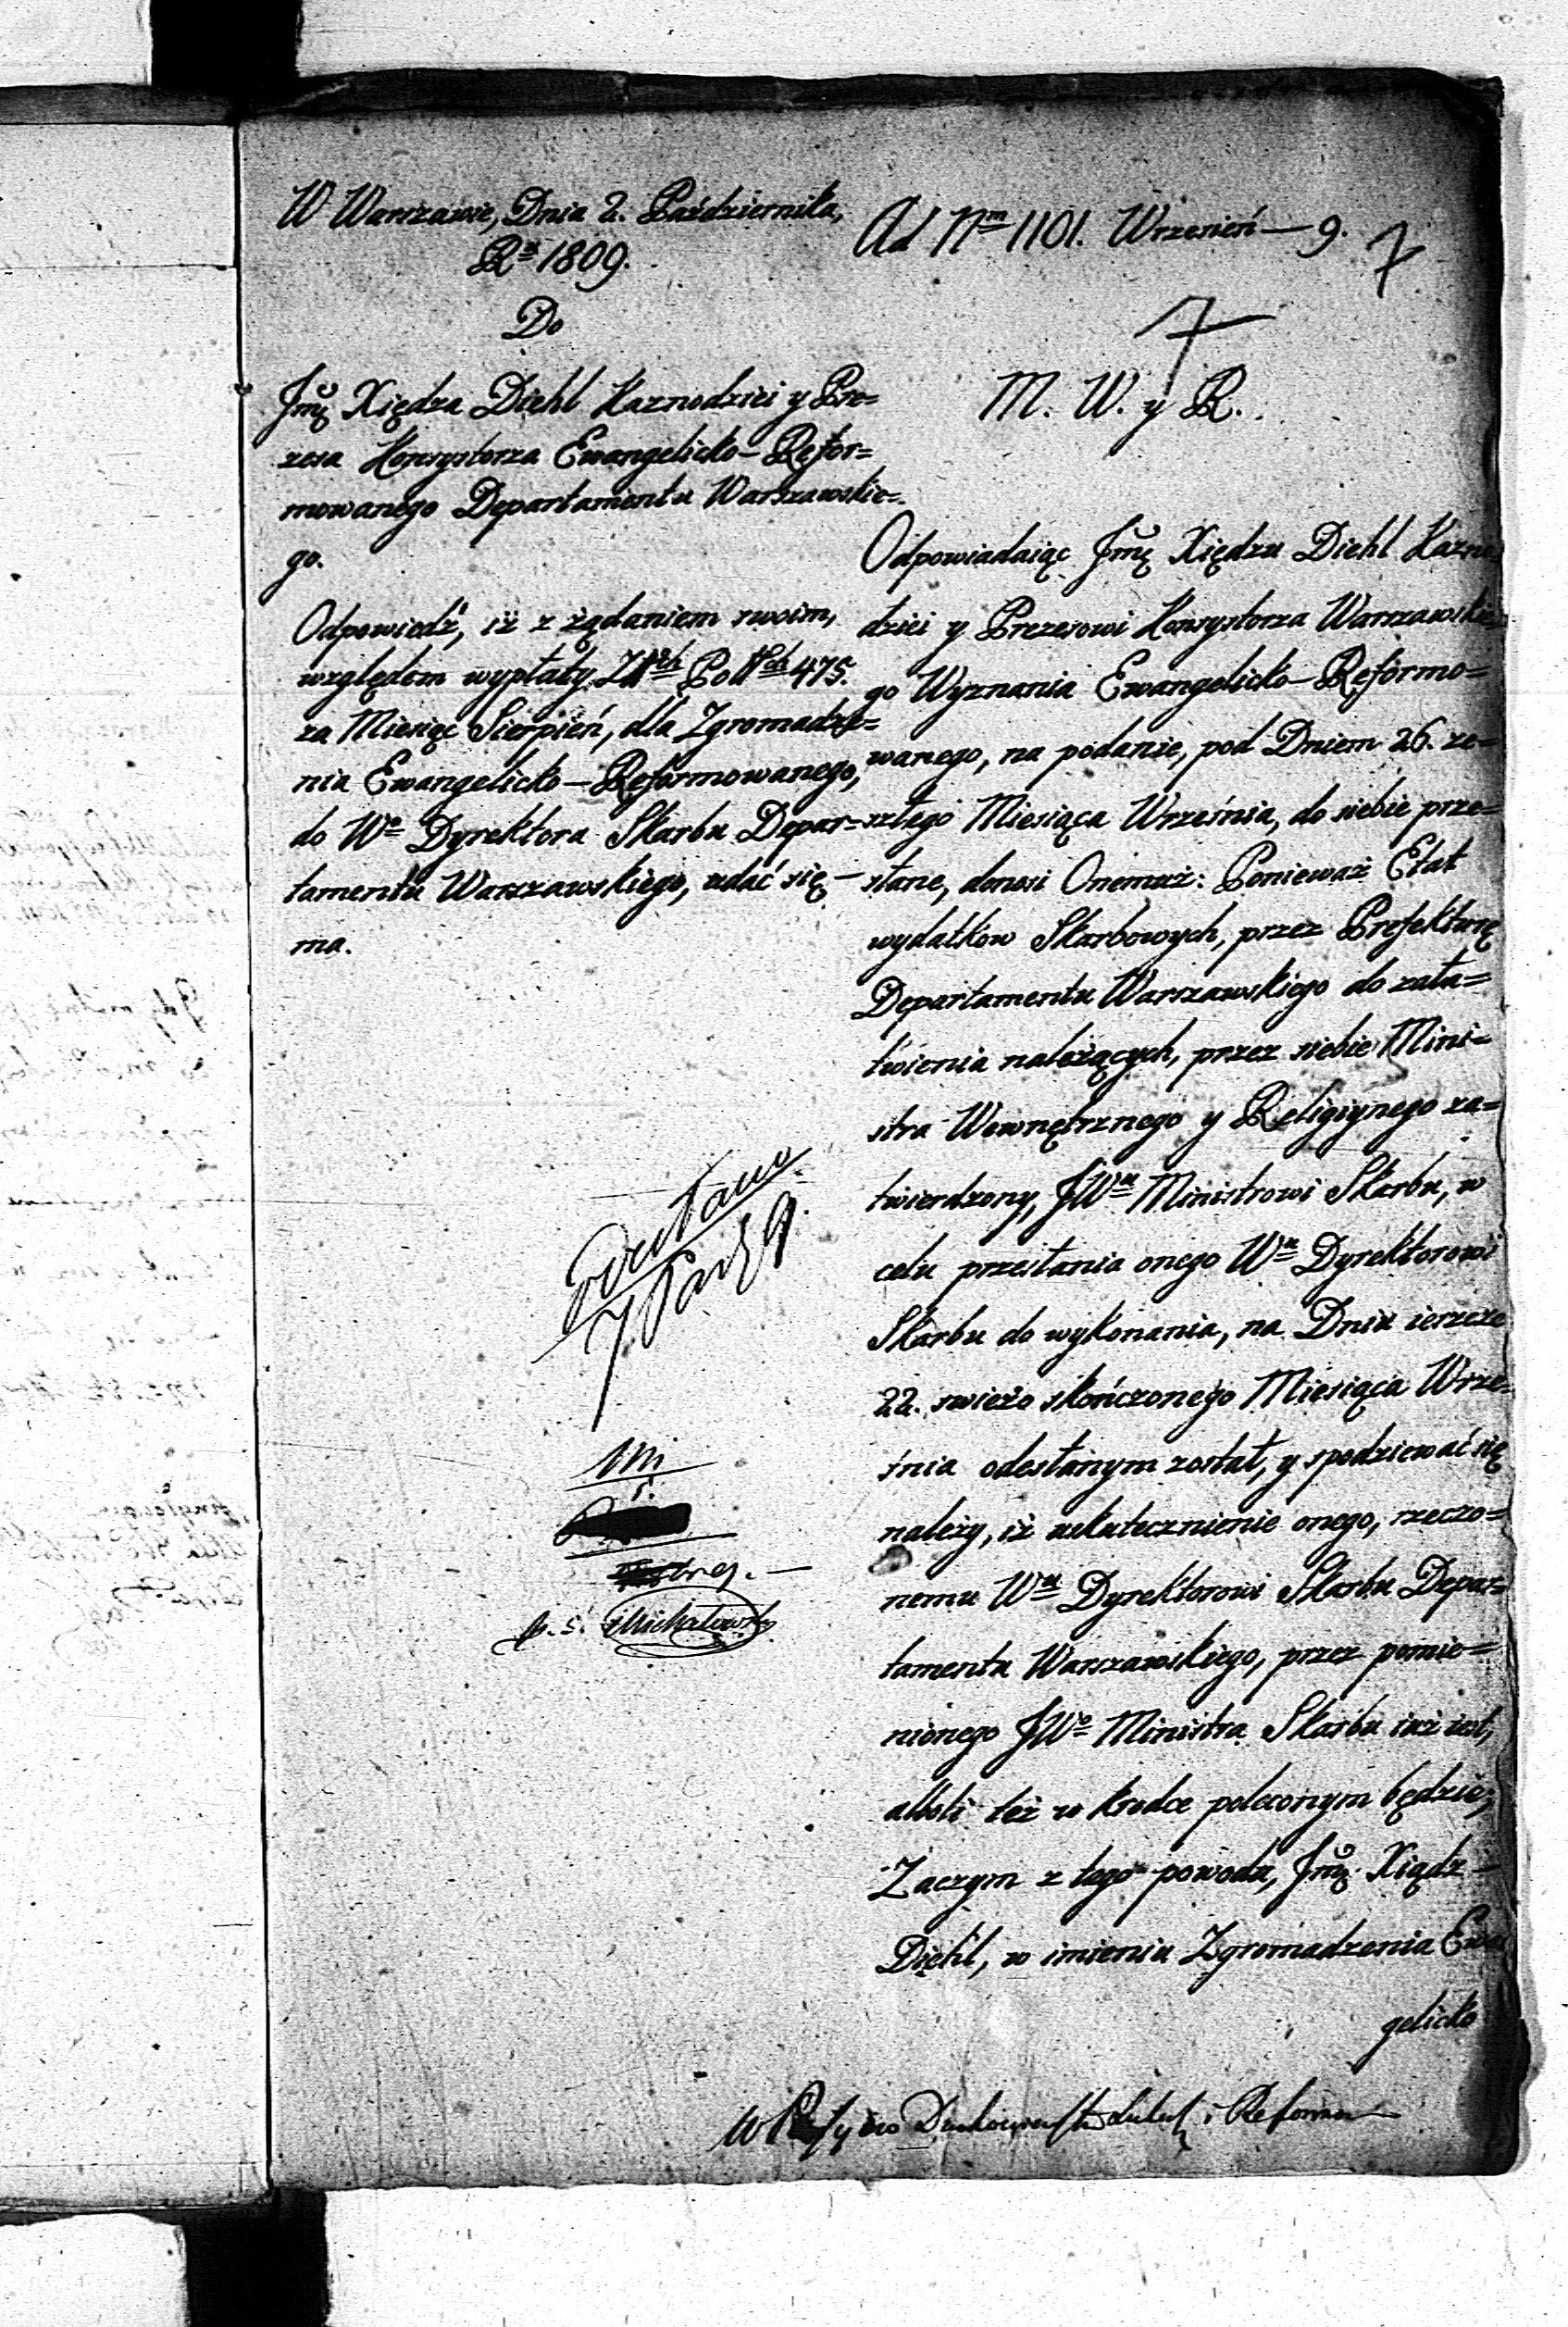 W Warszawie, Dnia 2. Października,
Ru 1809.
Do
Jmę Xiędza Diehl Kaznodziei y Pre=
zesa Konsystorza Ewangelicko-Refor=
mowanego Departamentu Warszawskie=
go.
Odpowiedź, iż z żądaniem swoim,
względem wypłaty Złłch Pollch 475.
za Miesiąc Sierpień, dla Zgromadze=
nia Ewangelicko-Reformowanego,
do Wo Dyrektora Skarbu Depar=
tamentu Warszawskiego, udać się -
ma.
M. S. Michałowski
Ad Nm 1101. Wrzesień - 9.
7
7
M. W. y R.
Odpowiadaiąc Jmę Xiędzu Diehl Kazno
dziei y Prezesowi Konsystorza Warszawskie=
go Wyznania Ewangelicko-Reformo=
wanego, na podanie, pod Dniem 26. ze=
szłego Miesiąca Września, do siebie prze=
słane, donosi Onemuż: Ponieważ Etat
wydatkow Skarbowych, przez Prefekturę
Departamentu Warszawskiego do zała=
twienia należących, przez siebie Mini=
stra Wewnętrznego y Religiynego za=
twierdzony, JWu Ministrowi Skarbu, w
celu przesłania onego Wu Dyrektorowi
Skarbu do wykonania, na Dniu ieszcze
22. swieżo skończonego Miesiąca Wrze=
śnia odesłanym został, y spodziewać się
należy, iż uskutecznienie onego, rzeczo=
nemu Wu Dyrektorowi Skarbu Depar=
tamentu Warszawskiego, przez pomie=
nionego JWo Ministra Skarbu iuż iest,
alboli też w krodce poleconym będzie;
Zaczym z tego powodu, Jmę Xiądz -
Diehl, w imieniu Zgromadzenia Ewa
gelicko